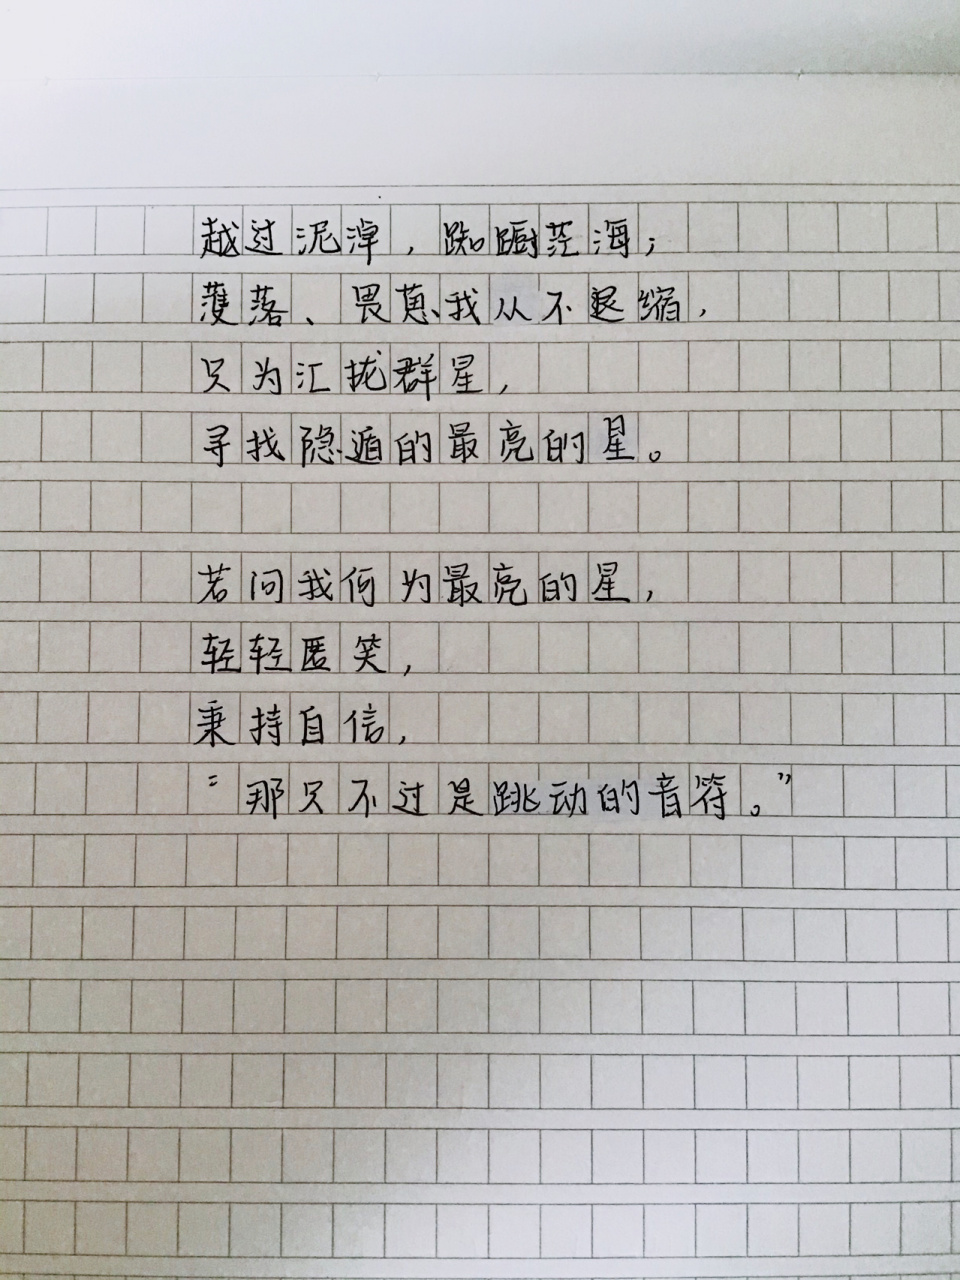 越过泥淖，踟蹰茫海；
濩落、畏葸我从不退缩，
只为汇拢群星，
寻找隐遁的最亮的星。
若问我何为最亮的星，
轻轻匿笑，
秉持自信，
“那只不过是跳动的音符。”